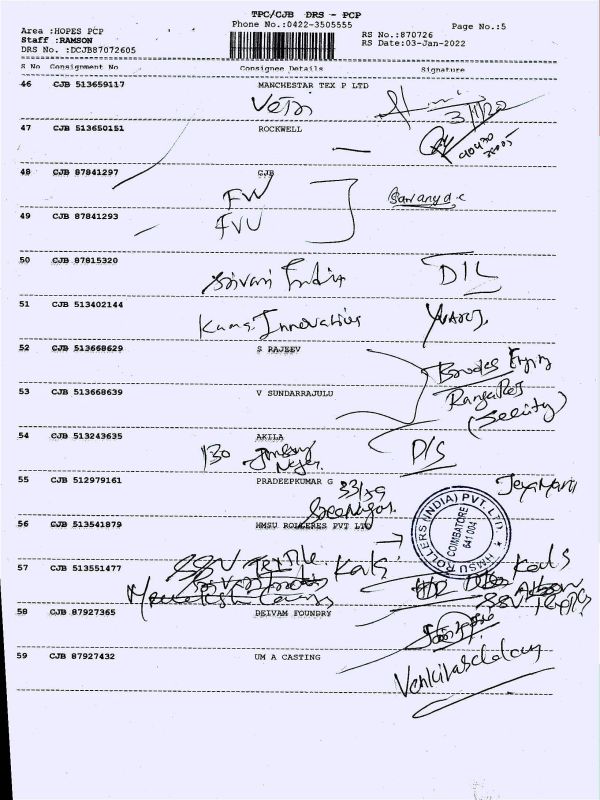 TPC/CJB DRS - PCP
Area :HOPES PCP
Phone No.:0422-3505555
Page No.:5
Staff :RAMSON
RS No.:870726
DRS No. :DCJB87072605
RS Date:03-Jan-2022
S No Consignment No Consignee Details Signature
46 CJB 513659117 MANCHESTAR TEX P LTD
3/1/22
47 CJB 513650151 ROCKWELL
90430
48 CJB 87841297 CJB
FW
Saranya.c
49 CJB 87841293
FVU
50 CJB 87815320
Srivari India DIL
51 CJB 513402144
Kams Innovative Yuvaraj
52 CJB 513668629 S RAJEEV
53 CJB 513668639 V SUNDARRAJULU
RangaRaj
(Security)
54 CJB 513243635 AKILA
130 Nager D/S
55 CJB 512979161 PRADEEPKUMAR G 33/39
SreeNagar
56 CJB 513541879 HMSU ROLLERES PVT LTD
HMSU ROLLERS (INDIA) PVT. LTD. ★
COIMBATORE
641 004
57 CJB 513551477 SSV Textile Kals
58 CJB 87927365 DEIVAM FOUNDRY
59 CJB 87927432 UM A CASTING
Venkitasalam